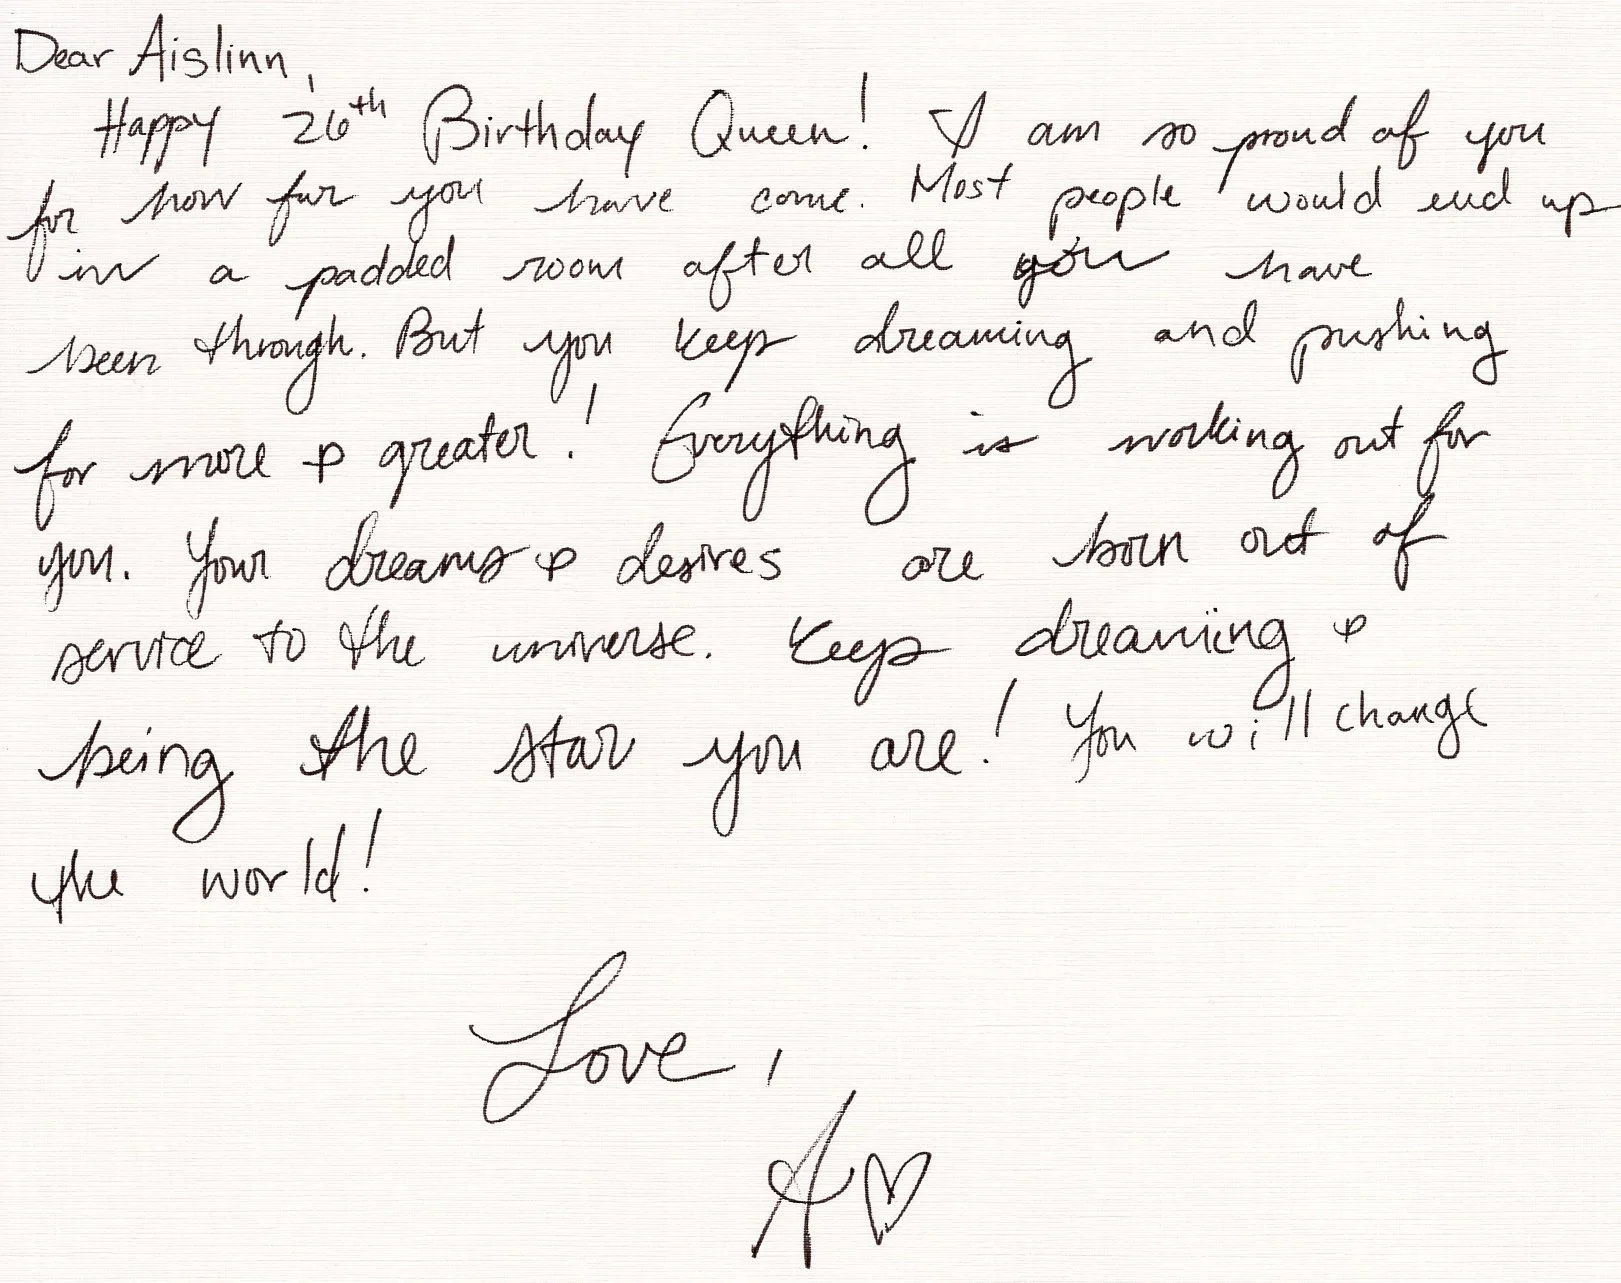 Dear Aislinn,
Happy 26th Birthday Queen! I am so proud of you
for how far you have come. Most people would end up
in a padded room after all you have
been through. But you keep dreaming and pushing
for more & greater! Everything is working out for
you. Your dreams & desires are born out of
service to the universe. Keep dreaming &
being the star you are! You will change
the world!
Love,
A♡